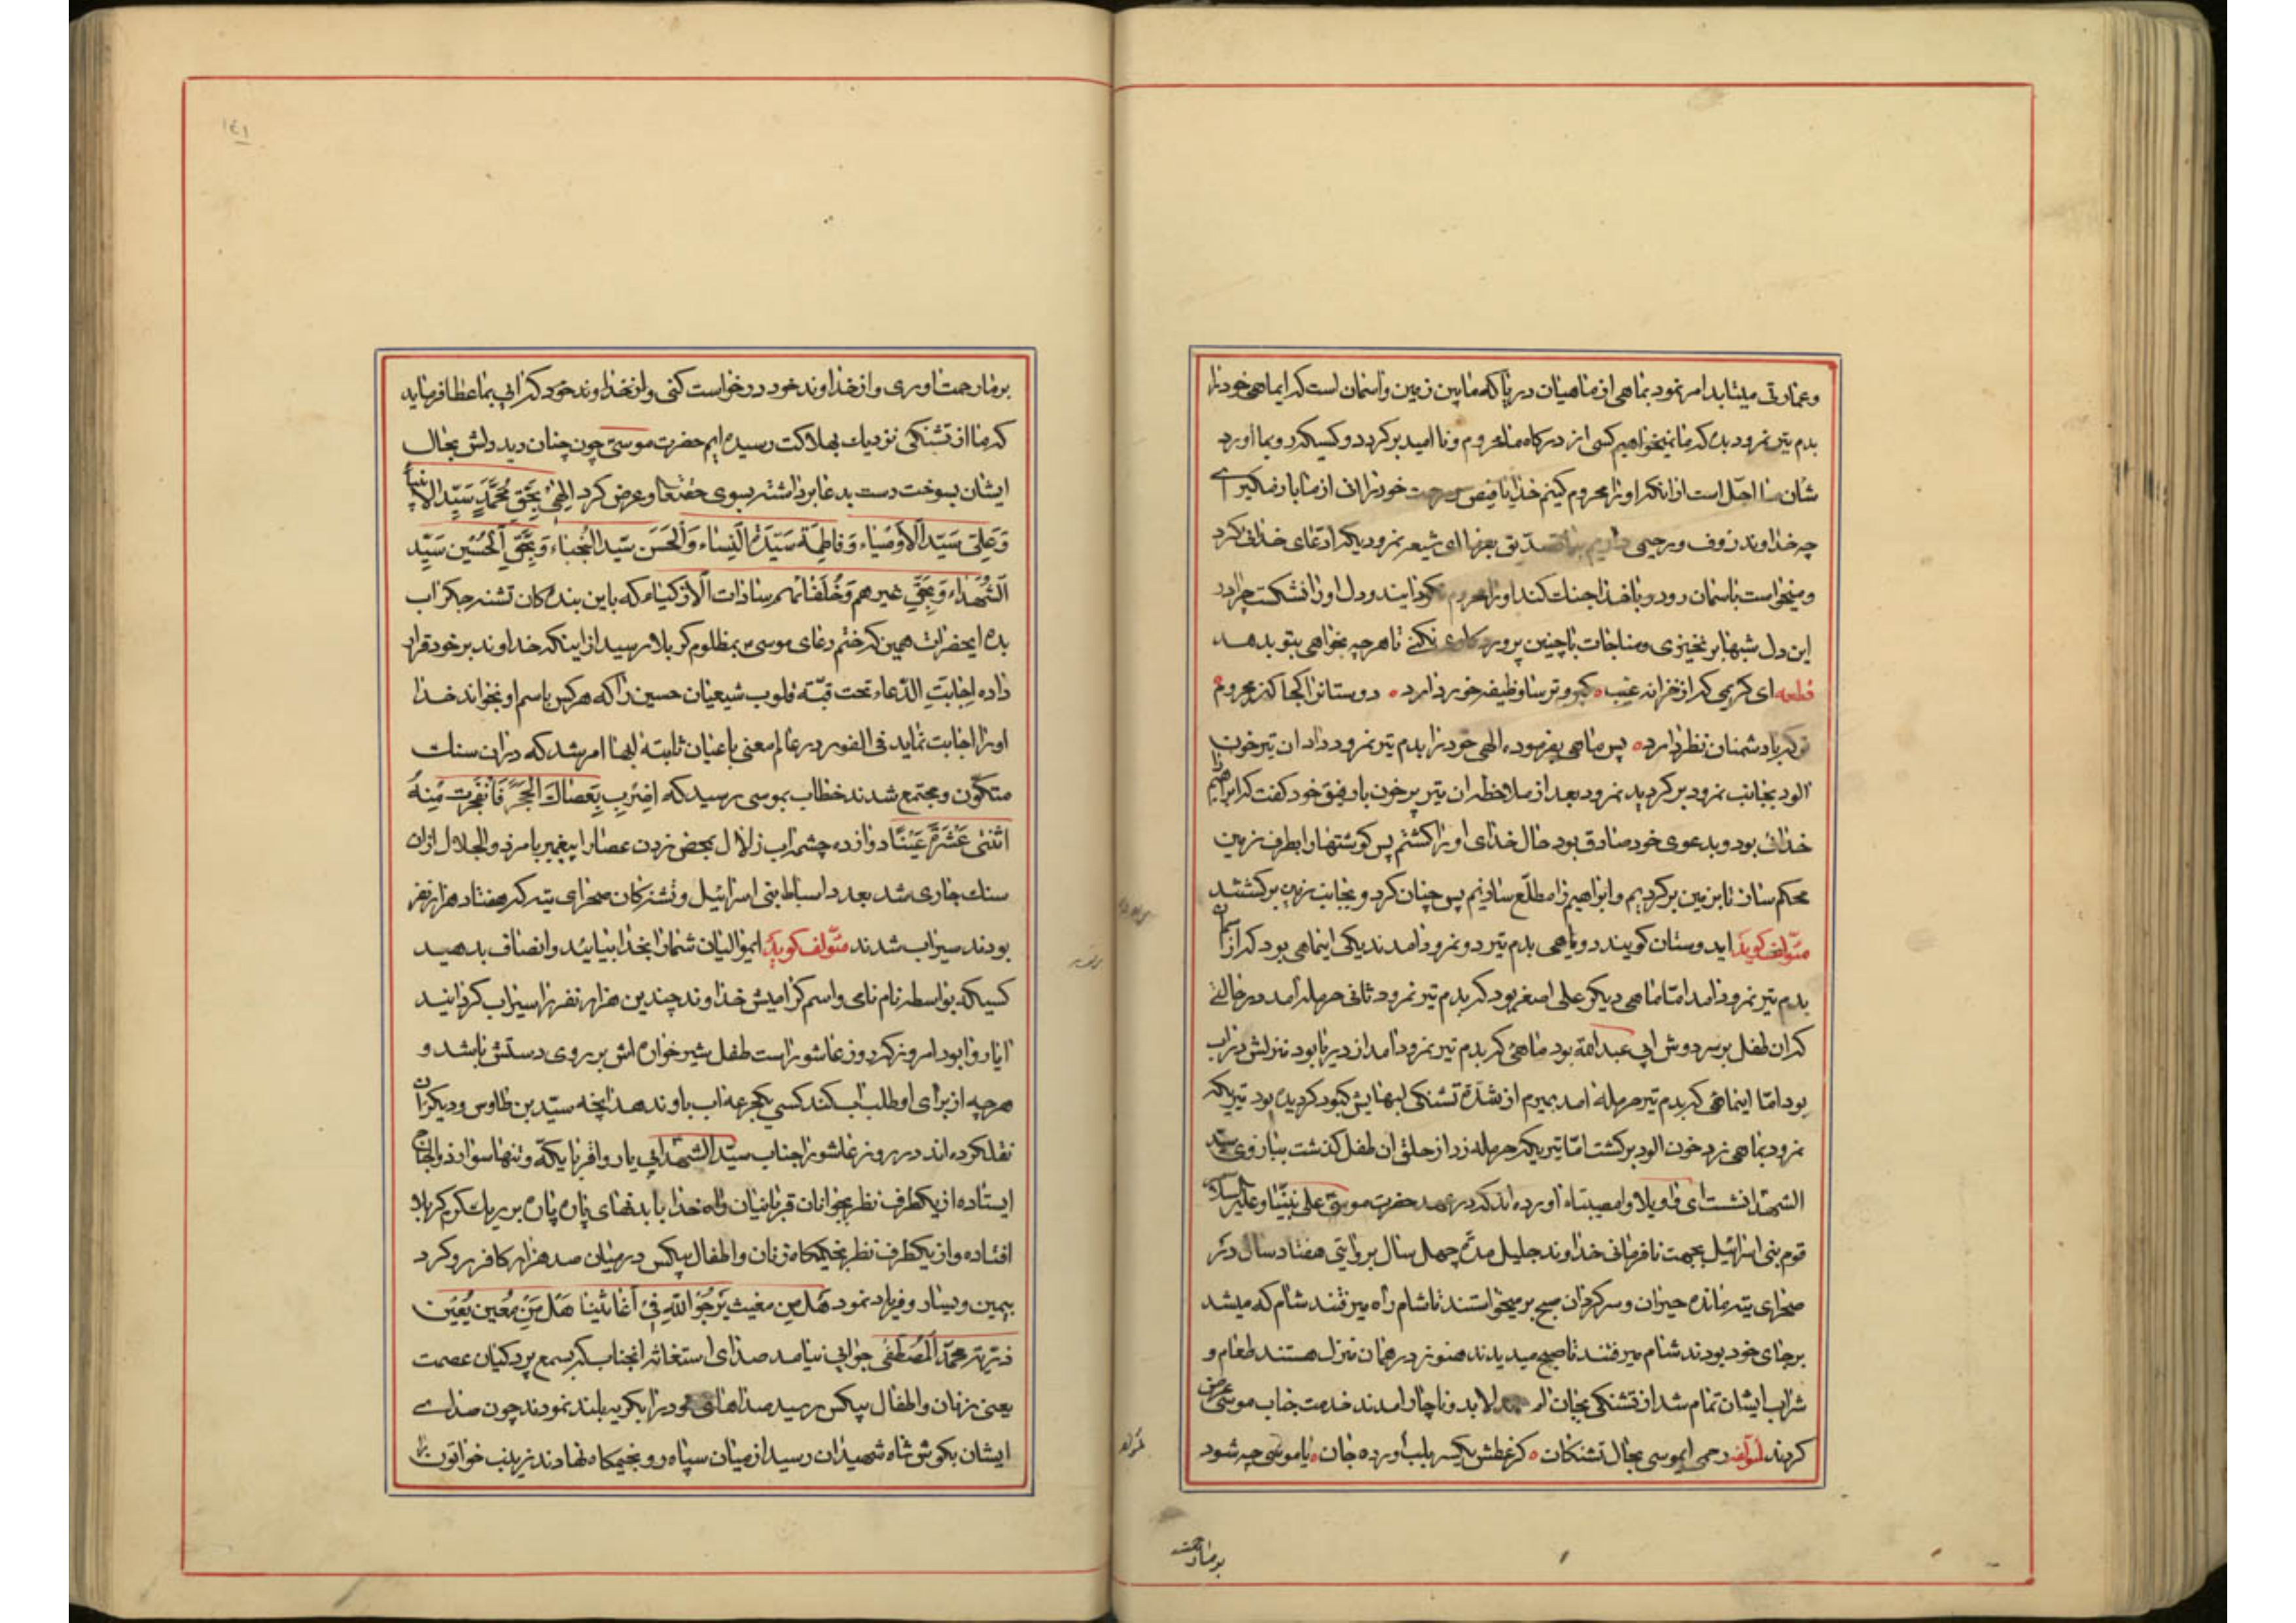 وعمارتی میتابد امر نمود بماهی از ماهیان دریا که مابین زمین واسمان است که ایماهی خود را
بدم تیر نمرود بده که ما نمیخواهیم کسی از درکاه ما محروم و نا امید برکردد و کسیکه رو بما اورد
شان ما اجل است از انکه او را محروم کنیم خدایا فیض رحمت خود را از ما باز مکیر
چه خداوند رؤف و رحیمی داریم ای شیعه نمرودیکه ادعای خدائی کرد
و میخواست باسمان رود و با خدا جنک کند او را محروم نکردانیدند و دل او را نشکست چرا در
این دل شبها بر نخیزی و مناجات با چنین پروردکاری نکنی تا هر چه بخواهی بتو بدهد
قطعه ای کریمی که از خزانه غیب کبر و ترسا وظیفه خور داری دوستانرا کجا کنی محروم
تو که با دشمنان نظر داری پس ماهی بفرموده الهی خود را بدم تیر نمرود داد ان تیر خون
الود بجانب نمرود برکردید نمرود بعد از ملاحظه ان تیر پر خون با رفیق خود کفت که ابراهیم را
خدائی بود و بدعوی خود صادق بود حال خدای او را کشتم پس کوشتها را بطرف زمین
محکم ساز تا بزمین برکردیم و ابراهیم را مطلع سازیم پس چنان کرد و بجانب زمین برکشتند
مؤلف کوید ایدوستان کویند دو ماهی بدم تیر دو نمرود امدند یکی اینماهی بود که از اسمان
بدم تیر نمرود امد اما ماهی دیکر علی اصغر بود که بدم تیر نمرود ثانی حرمله امد در حالتی
که ان طفل بر سر دوش ابی عبدالله بود ماهی که بدم تیر نمرود امد از دریا بود منزلش در اب
بود اما اینماهی که بدم تیر حرمله امد بمیرم از شدة تشنکی لبهایش کبود کردیده بود تیریکه
نمرود بماهی زد خون الود برکشت اما تیریکه حرمله زد از حلق ان طفل کذشت ببازوی سید
الشهدا نشست ای واویلا وا مصیبتاه اورده اند که در عهد حضرت موسی علی نبینا وعلیه السلام
قوم بنی اسرائیل بجهت نافرمانی خداوند جلیل مدة چهل سال بروایتی هفتاد سال در
صحرای تیه مانده حیران و سرکردان صبح برمیخواستند تا شام راه میرفتند شام که میشد
برجای خود بودند شام میرفتند تا صبح میدیدند هنوز در همان منزل هستند طعام و
شراب ایشان تمام شد از تشنکی بجان لابد و ناچار امدند خدمت جناب موسی عرض
کردند لمؤلفه رحمی ایموسی بحال تشنکان کز عطش یکسر بلب اورده جان یا موسی چه شود
بر ما رحمت
برما رحمت اوری و از خداوند خود درخواست کنی و از خداوند خود که ابی بما عطا فرماید
که ما از تشنکی نزدیک بهلاکت رسیده ایم حضرت موسی چون چنان دید دلش بحال
ایشان بسوخت دست بدعا برداشته بسوی حقتعا و عرض کرد الهی بحق محمد سید الانبیا
وعلی سید الاوصیاء وفاطمة سیدة النساء والحسن سید النجباء وبحق الحسین سید
الشهداء وبحق غیرهم وخلفائهم سادات الازکیاء که باین بندکان تشنه جکر اب
بده ایحضرات همین که ختم دعای موسی بمظلوم کربلا رسید از اینکه خداوند بر خود قرار
داده اجابت الدعاء تحت قبته قلوب شیعیان حسین را که هر کس باسم او بخواند خدا
او را اجابت نماید فی الفور در عالم معنی باعیان ثابته لبها امر شد که در ان سنک
متکون و مجتمع شدند خطاب بموسی رسید که اضرب بعصاک الحجر فانفجرت منه
اثنتی عشرة عینا دوازده چشمه اب زلال بمحض زدن عصا را پیغمبر بامر ذو الجلال از ان
سنک جاری شد بعدد اسباط بنی اسرائیل و تشنه کان صحرای تیه که هفتاد هزار نفر
بودند سیراب شدند مؤلف کوید ایموالیان شما را بخدا بیائید و انصاف بدهید
کسیکه بواسطه نام نامی و اسم کرامیش خداوند چندین هزار نفر را سیراب کردانید
ایا روا بود امروز که روز عاشورا است طفل شیر خواره اش بر روی دستش باشد و
هر چه از برای او طلب اب کند کسی یکجرعه اب باو ندهد ایچنه سید بن طاوس و دیکران
نقل کرده اند در روز عاشورا جناب سید الشهدا بی یار و اقربا یکه و تنها سوار ذو الجناح
ایستاده از یکطرف نظر بجوانان قربانیان راه خدا با بدنهای پاره پاره بر ریک کرم کربلا
افتاده و از یکطرف نظر بخیمکاه زنان و اطفال بیکس در میان صد هزار کافر رو کرد
بیمین و یسار و فریاد نمود هل من مغیث یرجو الله فی اغاثتنا هل من معین یعین
ذریة محمد المصطفی جوابی نیامد صدای استغاثه انجناب که بسمع پردکیان عصمت
یعنی زنان و اطفال بیکس رسید صداهای خود را بکریه بلند نمودند چون صدای
ایشان بکوش شاه شهیدان رسید از میان سپاه رو بخیمکاه نهادند زینب خواتون را